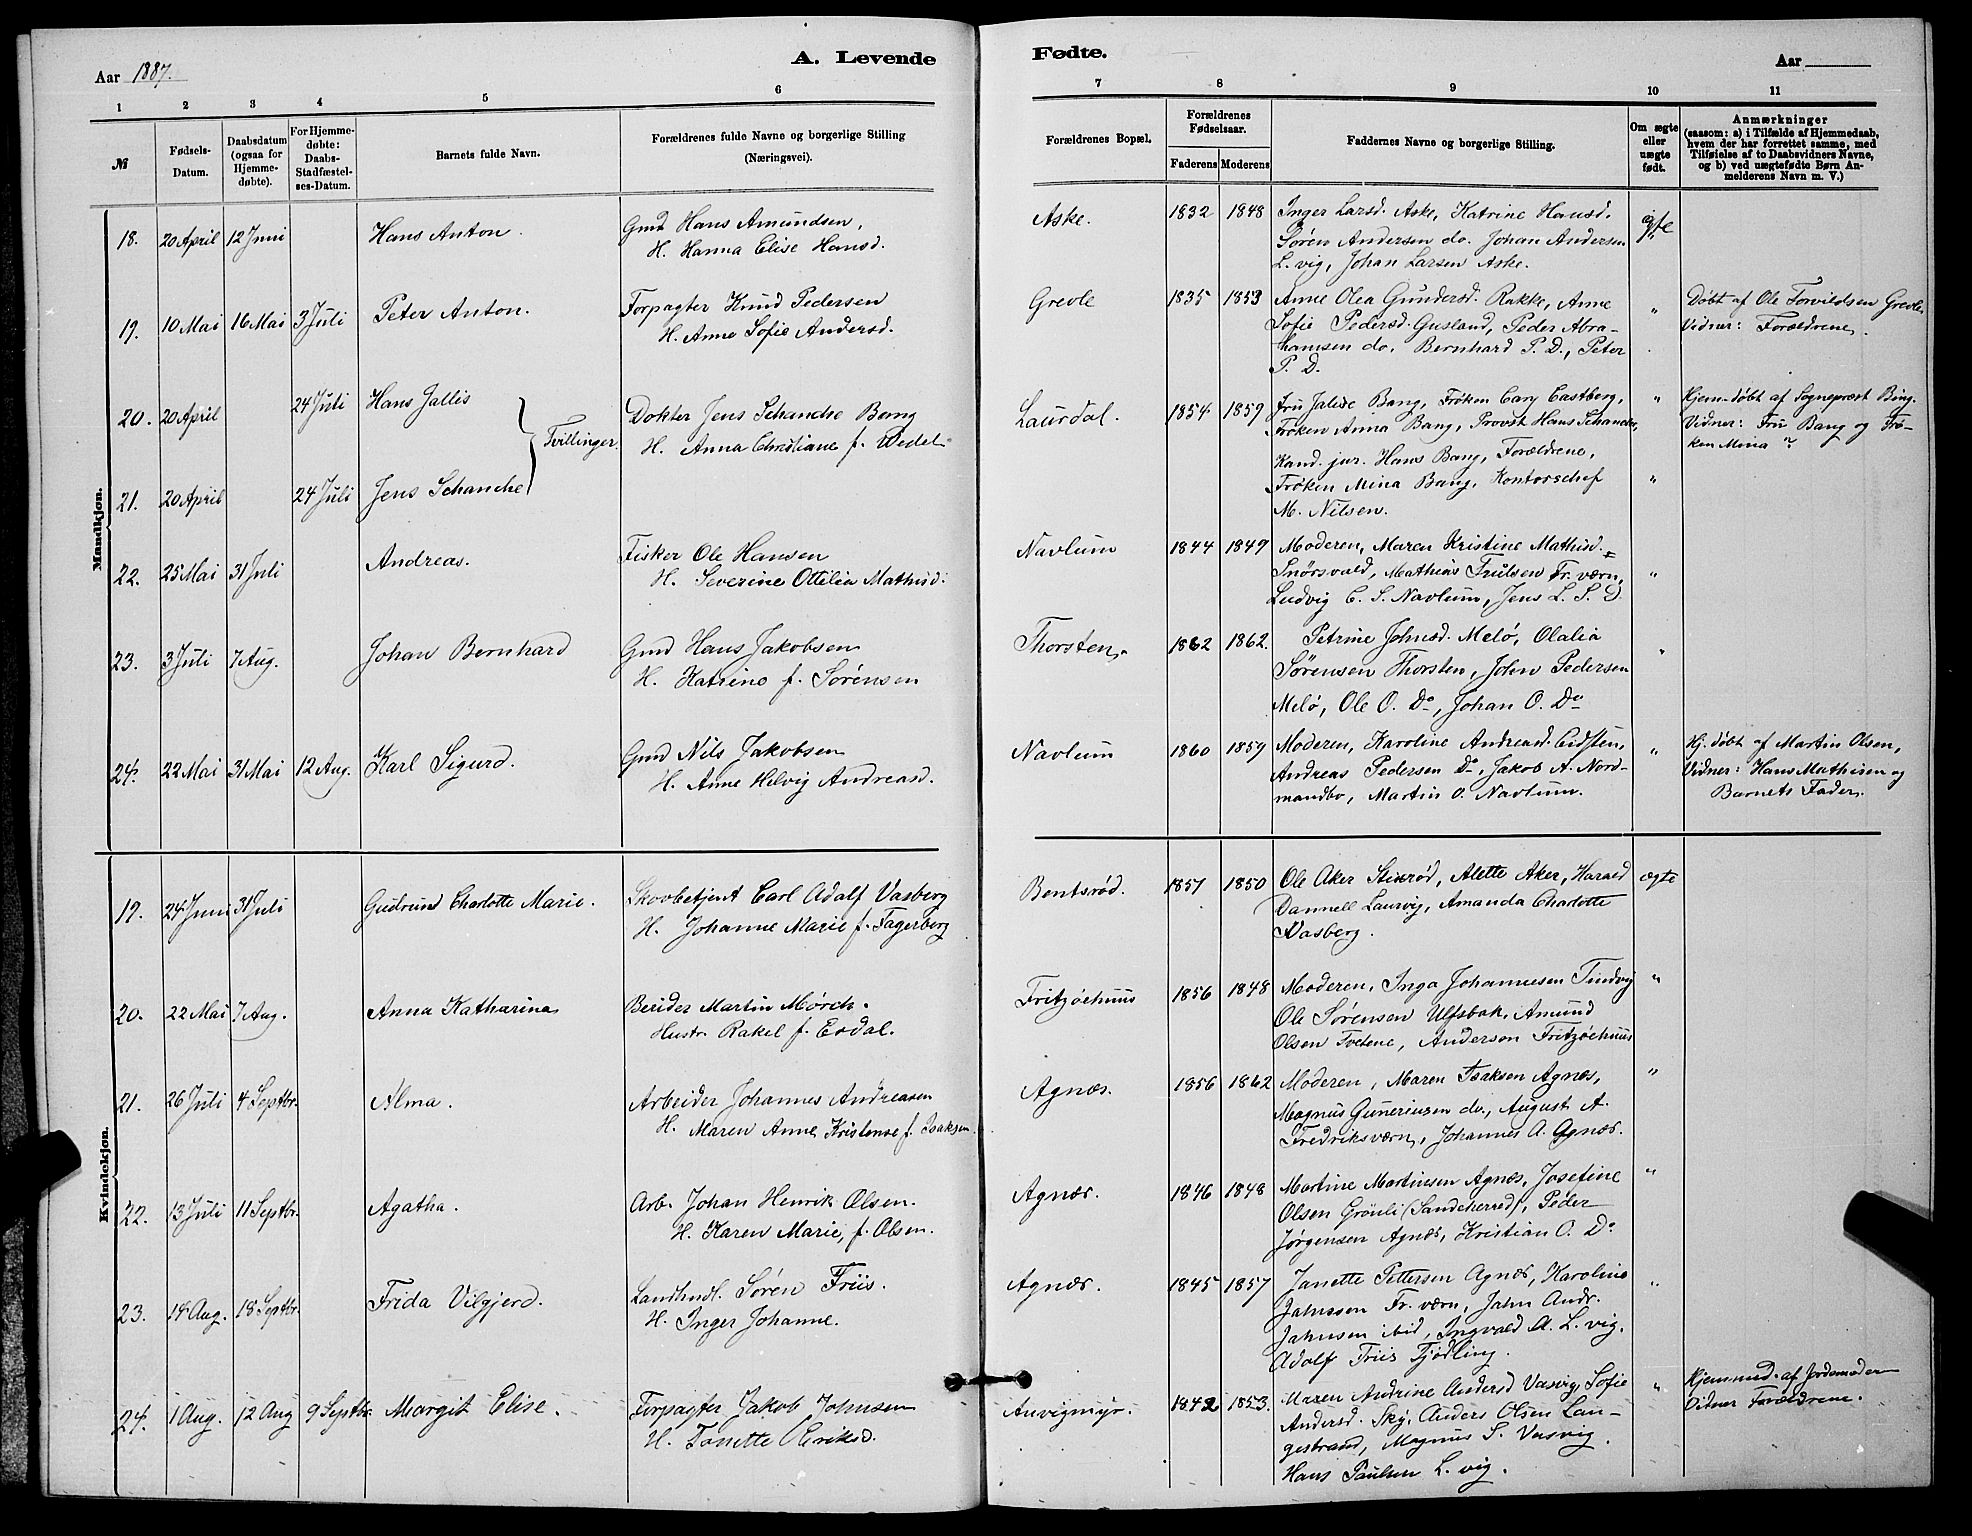 Aar 1887.
A. Levende
Fødte.
Aar
1 2 3 4 5 6
7 8 9 10 11
№
Fødsels-Datum.
Daabsdatum (ogsaa for Hjemme-døbte).
For Hjemme-døbte: Daabs-Stadfæstel-ses-Datum.
Barnets fulde Navn.
Forældrenes fulde Navne og borgerlige Stilling (Næringsvei).
Forældrenes Bopæl.
Forældrenes Fødselsaar.
Faderens Moderens
Faddernes Navne og borgerlige Stilling.
Om ægte eller uægte født.
Anmærkninger
(saasom: a) i Tilfælde af Hjemmedaab,
hvem der har forrettet samme, med
Tilføielse af to Daabsvidners Navne,
og b) ved uægtefødte Børn An-
melderens Navn m. V.)
Mandkjøn.
18. 20 April 12 Juni Hans Anton.
Gmd Hans Amundsen,
H. Hanna Elise Hansd.
Aske. 1832 1848
Inger Larsd. Aske, Katrine Hansd.
Søren Andersen do. Johan Andersen
L.vig, Johan Larsen Aske.
19. 10 Mai 16 Mai 3 Juli Peter Anton.
Forpagter Knud Pedersen
H. Anne Sofie Andersd.
Grevle 1835 1853
Anne Olea Gundersd. Rakke, Anne
Sofie Pedersd. Gusland, Peder Abra-
hamsen do, Bernhard P. D., Peter
P. D.
"
Døbt af Ole Torvildsen Grevle
Vidner: Forældrene.
20. 20 April 24 Juli Hans Jallis
Tvillinger
Dokter Jens Schanche Bang
H. Anna Christiane f. Wedel
Laurdal. 1854 1859
Fru Jalise Bang, Frøken Cary Eastberg,
Frøken Anna Bang, Provst Hans Schanche,
Kand. jur. Hans Bang, Forældrene,
Frøken Mina Bang, Kontorschef
M. Nilsen.
"
Hjem-døbt af Sogneprest Bing.
Vidner: Fru Bang og Frø-
ken Mina "
21. 20 April 24 Juli Jens Schanche
"
22. 25 Mai 31 Juli Andreas.
Fisker Ole Hansen
H. Severine Ottilia Mathisd.
Navlum 1844 1849
Moderen, Maren Kristine Mathisd.
Snørsvald, Mathias Trulsen Fr.værn,
Ludvig C. S. Navlum, Jens L. S. D.
"
23. 3 Juli 7 Aug. Johan Bernhard
Gmd Hans Jakobsen
H. Katrine f. Sørensen
Thorsten. 1862 1862.
Petrine Johnsd. Melø, Olalia
Sørensen Thorsten, John Pedersen
Melø, Ole O. Do, Johan O. Do
"
24. 22 Mai 31 Mai 12 Aug. Karl Sigurd.
Gmd Nils Jakobsen
H. Anne Helvig Andreasd.
Navlum 1860 1859
Moderen, Karoline Andreasd. Eidsten,
Andreas Pedersen Do, Jakob A. Nord-
mandbo, Martin O. Navlum.
"
Hj. døbt af Martin Olsen,
Vidner: Hans Mathisen og
Barnets Fader.
Kvindekjøn.
19. 24 Juni 31 Juli Gudrund Charlotte Marie.
Skovbetjent Carl Adalf Vasberg
H. Johanne Marie f. Fagerberg
Bentsrød. 1851 1850
Ole Aker Stixrød, Alette Aker, Harald
Dannell Laurvig, Amanda Charlotte
Wasberg.
ægte
20. 22 Mai 7 Aug. Anna Katharina
Berider Martin Mørch.
Hustr. Rakel f. Esdal.
Fritzøehuus 1856 1848
Moderen, Inga Johannesen Tindvig
Ole Sørensen Ulfsbak, Amund
Olsen Tvetene, Anderson Fritzøehuus
"
21. 26 Juli 4 Septbr. Alma.
Arbeider Johannes Andreasen
H. Maren Anne Kristense f. Isaksen.
Agnæs. 1856 1862
Moderen, Maren Isaksen Agnæs,
Magnus Guneriusen do., August A.
Fredriksværn, Johannes A. Agnæs.
"
22. 13 Juli 11 Septbr. Agatha.
Arb. Johan Henrik Olsen.
H. Karen Marie, f. Olsen.
Agnæs. 1846 1848
Martine Martinsen Agnæs, Josefine
Olsen Grønli (Sandeherred), Peder
Jørgensen Agnæs, Kristian O. Do
"
23. 14 Aug. 18 Septbr. Frida Vilgjerd.
Landhndl. Søren Friis.
H. Inger Johanne.
Agnæs. 1845 1857
Janette Pettersen Agnæs, Karoline
Jahnssen Fr. værn, Jahn Andr.
Jahnsen ibid, Ingvald A. L. vig.
Adolf Friis Tjødling.
"
24. 1 Aug. 12 Aug 9 Septbr. Margit Elise.
Forpagter Jakob Johnsen
H. Tonette Olriksd.
Anvigmyr. 1842 1853.
Maren Andrine Andersd Vasvig, Sofie
Andersd. Sky, Anders Olsen Lan-
gestrand, Magnus S. Vasvig.
Hans Paulsen L. vig.
"
Hjemmed. af Jordemoder
Vidner Forældrene.